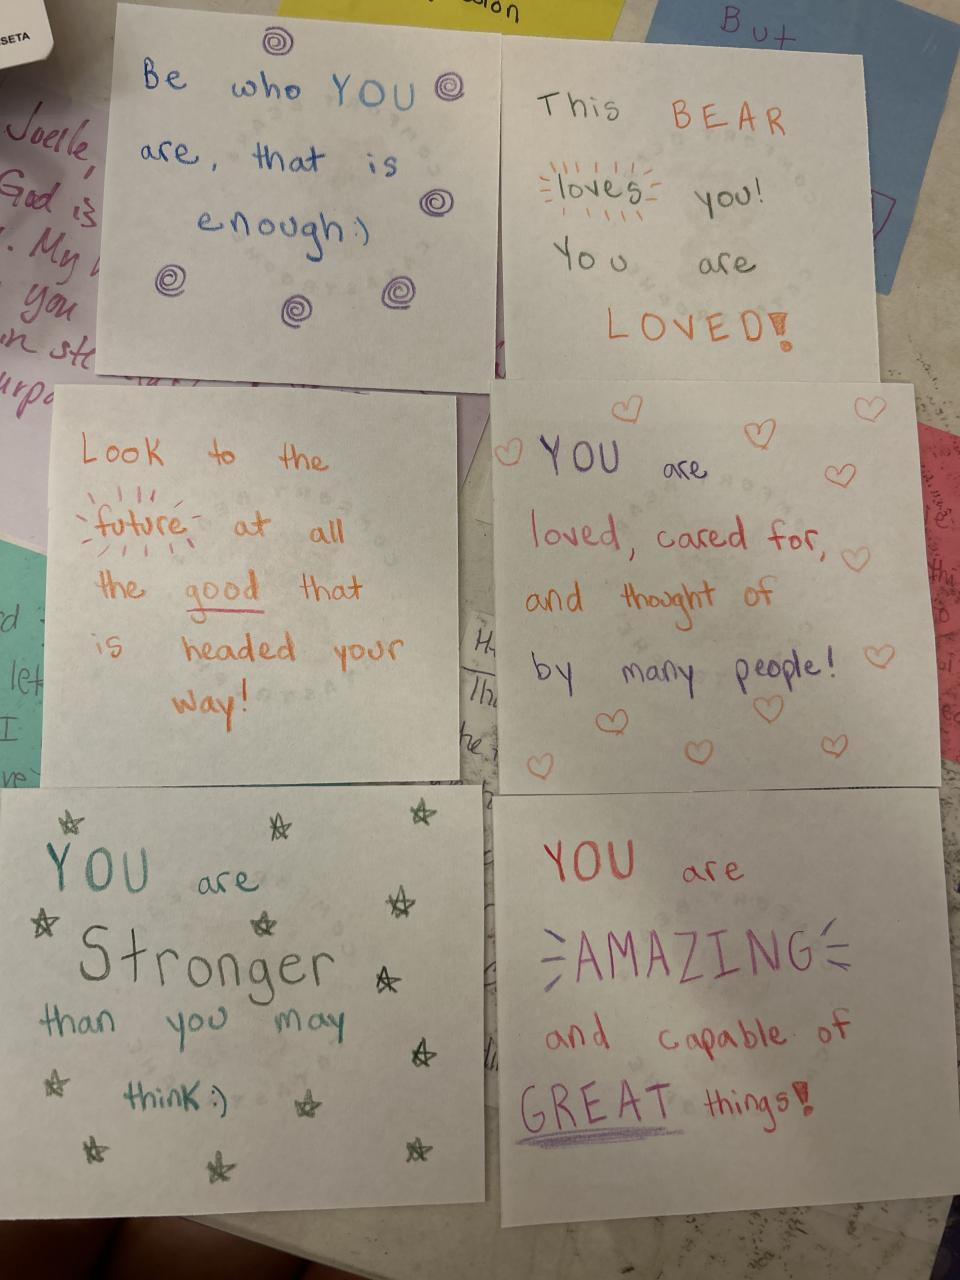 SETA
sion
But
Be who YOU
are, that is
enough:)
This BEAR
loves you!
You are
LOVED!
Joelle,
God is
. My
you
in
Look to the
future at all
the good that
is headed your
way!
YOU are
loved, cared for,
and thought of
by many people!
d
let
I
YOU are
Stronger
than you may
think:)
YOU are
AMAZING
and capable of
GREAT things!